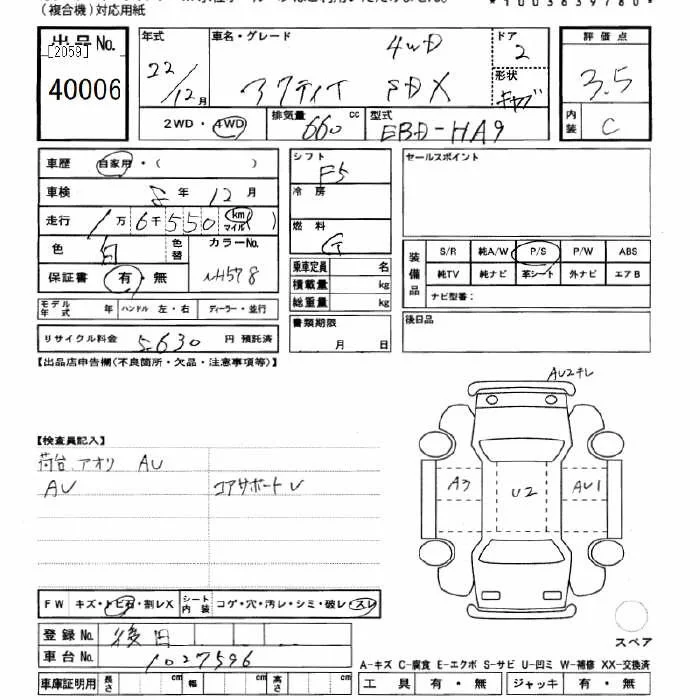 (複合機)対応用紙
*1003639780*
出品No.
[2059]
40006
年式 22/12月
車名・グレード 4WD
アクティT SDX
ドア 2
形状 キャブ
2WD・4WD
排気量 660 cc
型式 EBD-HA9
評価点
3.5
内装 C
車歴 自家用・( )
車検 年 12月
走行 1万6千550 km マイル( )
色 白 色替
カラーNo. NH578
保証書 有・無
モデル年式 年 ハンドル 左・右 ディーラー・並行
リサイクル料金 5,630 円 預託済
シフト F5
冷房
燃料 G
乗車定員 名
積載量 kg
総重量 kg
書類期限
月 日
セールスポイント
装備品
S/R 純A/W P/S P/W ABS
純TV 純ナビ 革シート 外ナビ エアB
ナビ型番:
後日品
【出品店申告欄(不良箇所・欠品・注意事項等)】
【検査員記入】
荷台、アオリ AU
AU コアサポートU
AU2キレ
A3 U2 AU1
FW キズ・トビ石・割レX シート内装 コゲ・穴・汚レ・シミ・破レ・スレ
登録No. 後日
車台No. 1027596
車庫証明用 長さ cm 幅 cm 高さ cm
スペア
A-キズ C-腐食 E-エクボ S-サビ U-凹ミ W-補修 XX-交換済
工具 有・無 ジャッキ 有・無